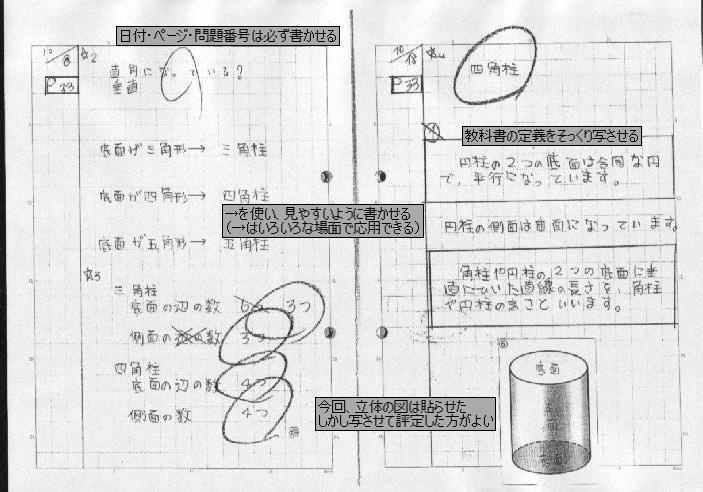 日付・ページ・問題番号は必ず書かせる
10/8 ☆2
P33
直角になっている?
垂直
底面が三角形→ 三角柱
底面が四角形→ 四角柱
→を使い、見やすいように書かせる
(→はいろいろな場面で応用できる)
底面が五角形→ 五角柱
☆3
三角柱
底面の辺の数 3つ
側面の数 3つ
四角柱
底面の辺の数 4つ
側面の数 4つ
P33
四角柱
教科書の定義をそっくり写させる
円柱の2つの底面は合同な円
で、平行になっています。
円柱の側面は曲面になっています。
角柱や円柱の2つの底面に垂
直にひいた直線の長さを、角柱
や円柱の高さといいます。
今回、立体の図は貼らせた
しかし写させて評定した方がよい
底面
底面